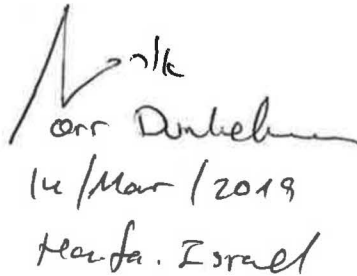 orr Dunkelman
14/Mar/2019
Haifa. Israel